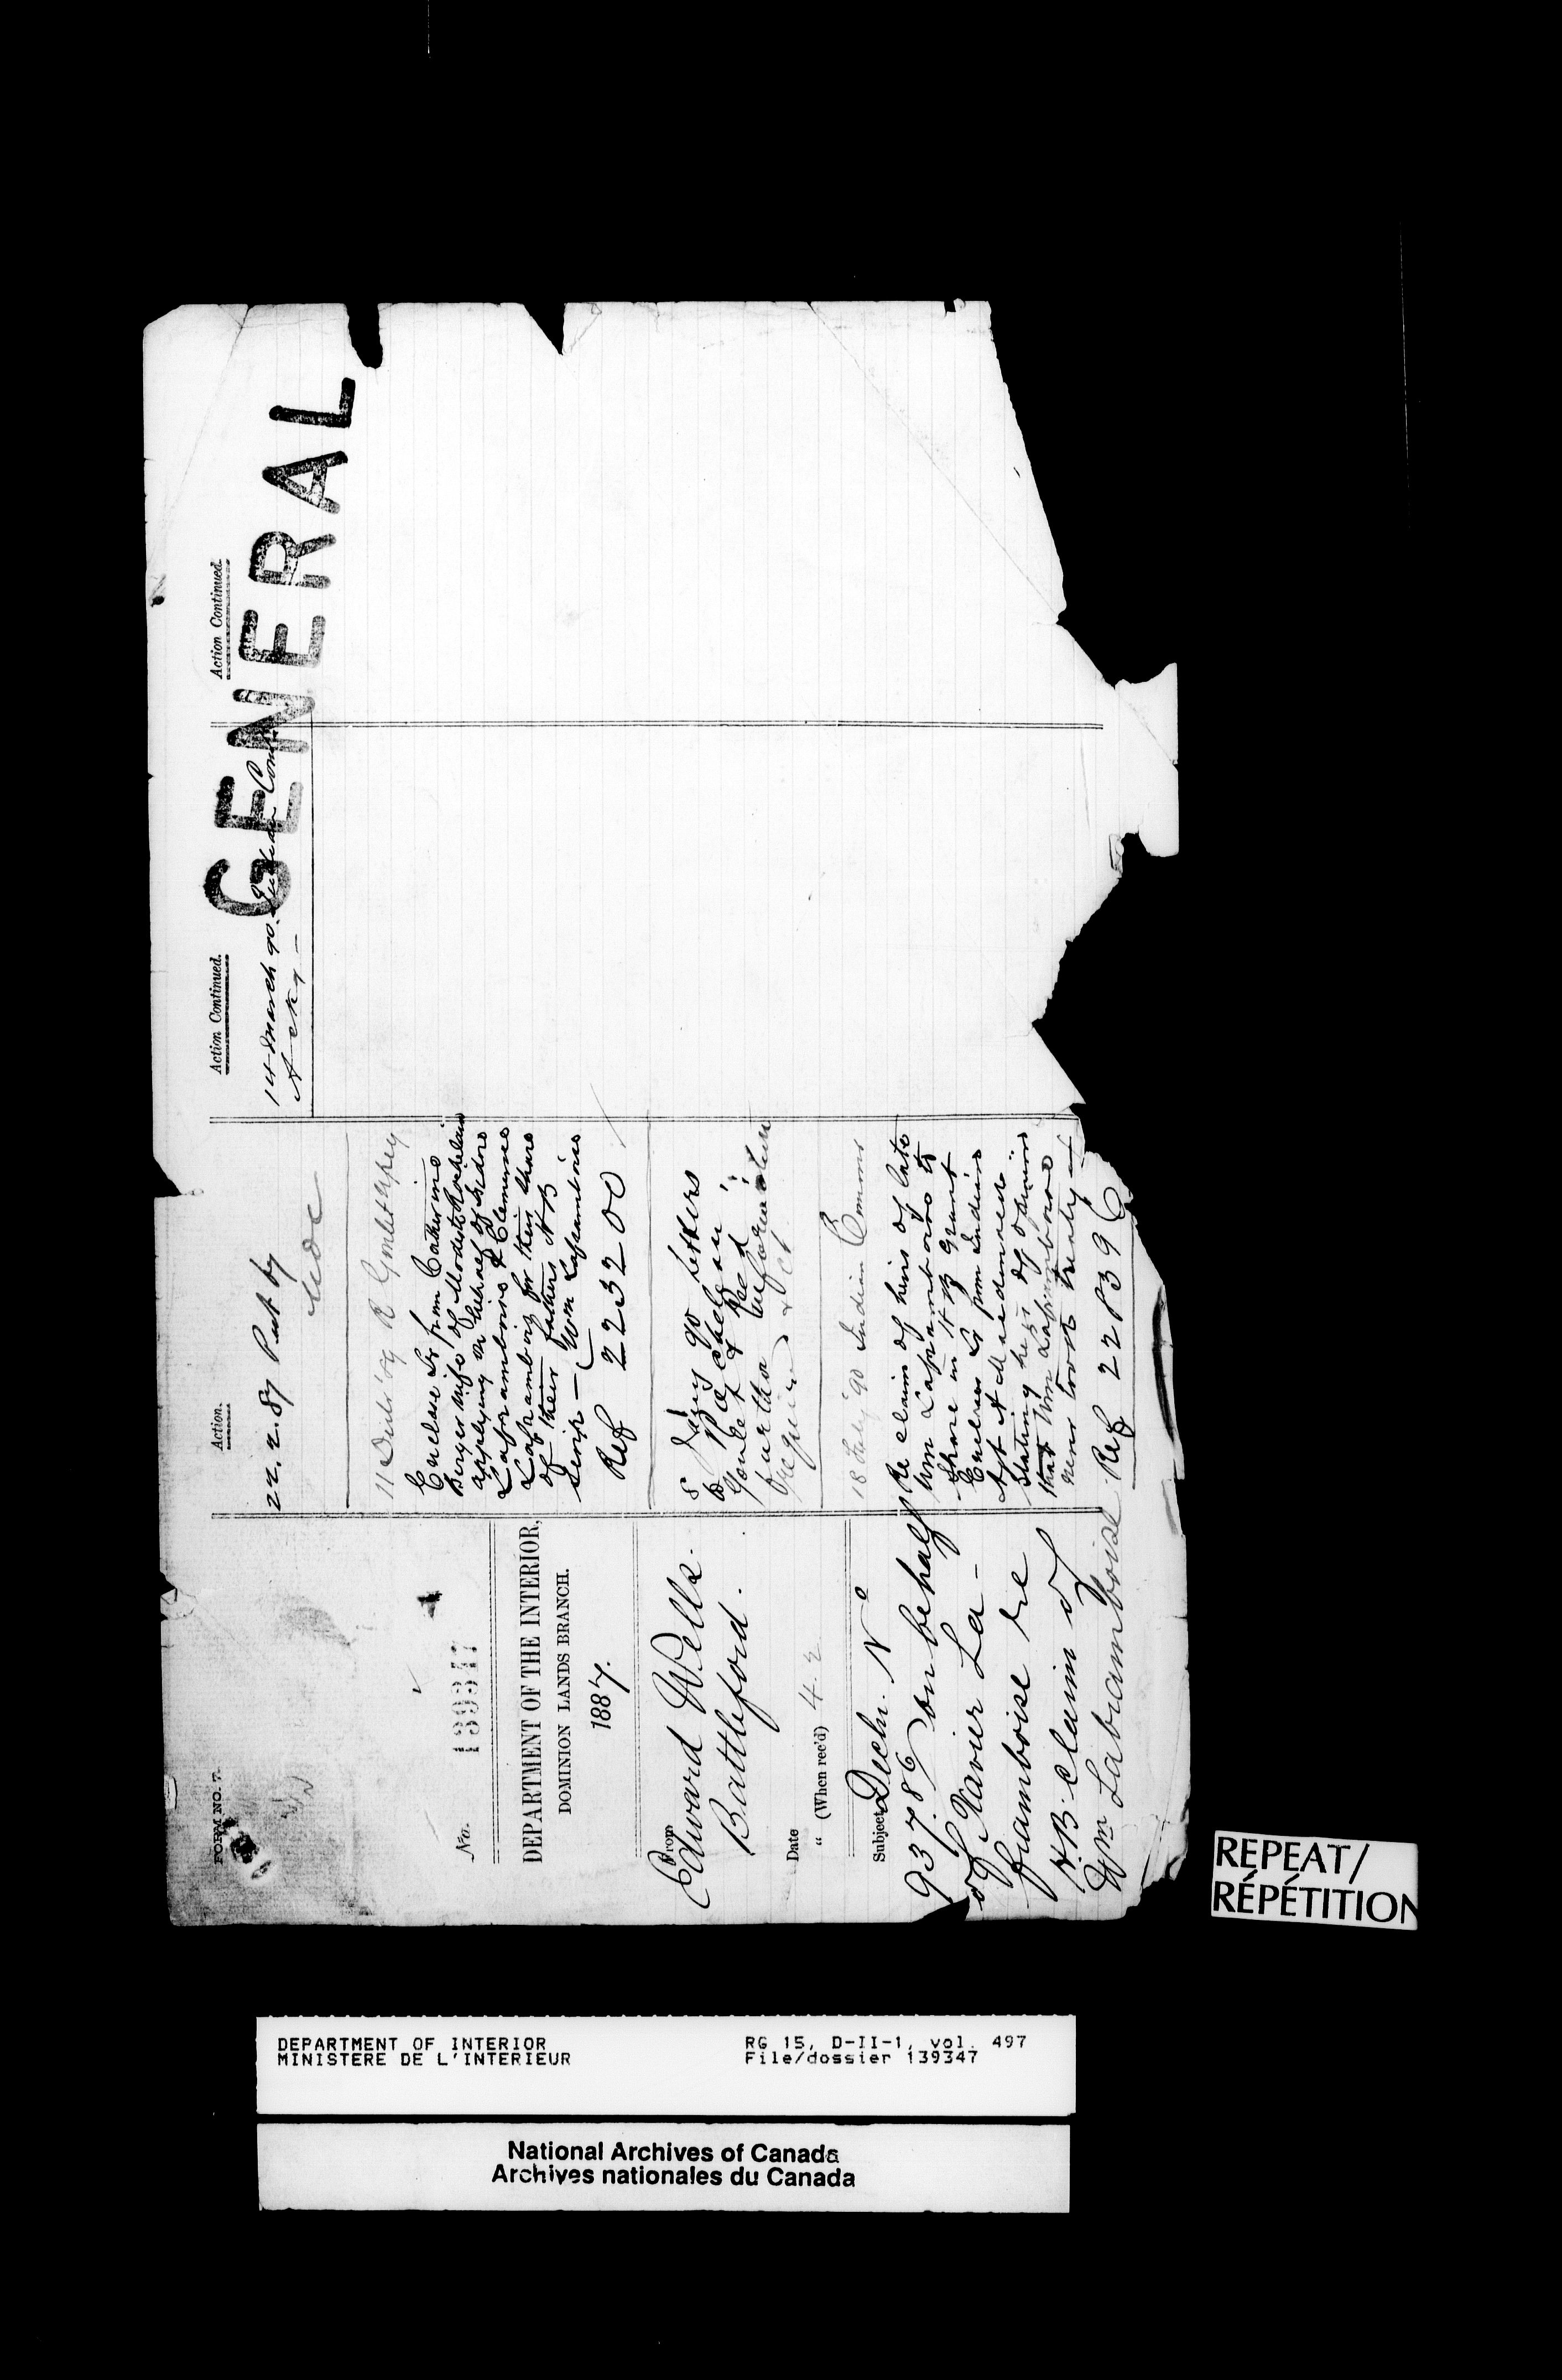 FORM NO. 7.
No. 139347
DEPARTMENT OF THE INTERIOR,
DOMINION LANDS BRANCH.
1887.
From
Edward Wells.
Battleford.
Date
" (When rec'd) 4.2
Subject Decln. No
937.86 on behalf
of Xavier La-
framboise re
H.B. claim of
Wm Laframboise
Action.
22.2.87 Put by
11 Decr '89 R Goulet
Enclose Lr from Catherine
Berger wife of Modeste Rochelain
applying on behalf of Isidore
Laframboise & Clemence
Laframboise for their share
of their fathers HB
Scrip — Wm Laframboise
Ref 223200
8 Jany 90 letters
to
Goulet &
further information
required
18 Feby '90 Indian Commr
Re claim of heirs of late
Wm Laframboise to
Share in H B grant
Encloses Lr from Indian
Agt
stating he is of opinion
that Wm Laframboise
never took treaty
Ref 228396
Action Continued.
14 March 90. Indian Comr
Ackg —
Action Continued.
GENERAL
REPEAT/
RÉPÉTITION
DEPARTMENT OF INTERIOR
MINISTERE DE L'INTERIEUR
RG 15, D-II-1, vol. 497
File/dossier 139347
National Archives of Canada
Archives nationales du Canada